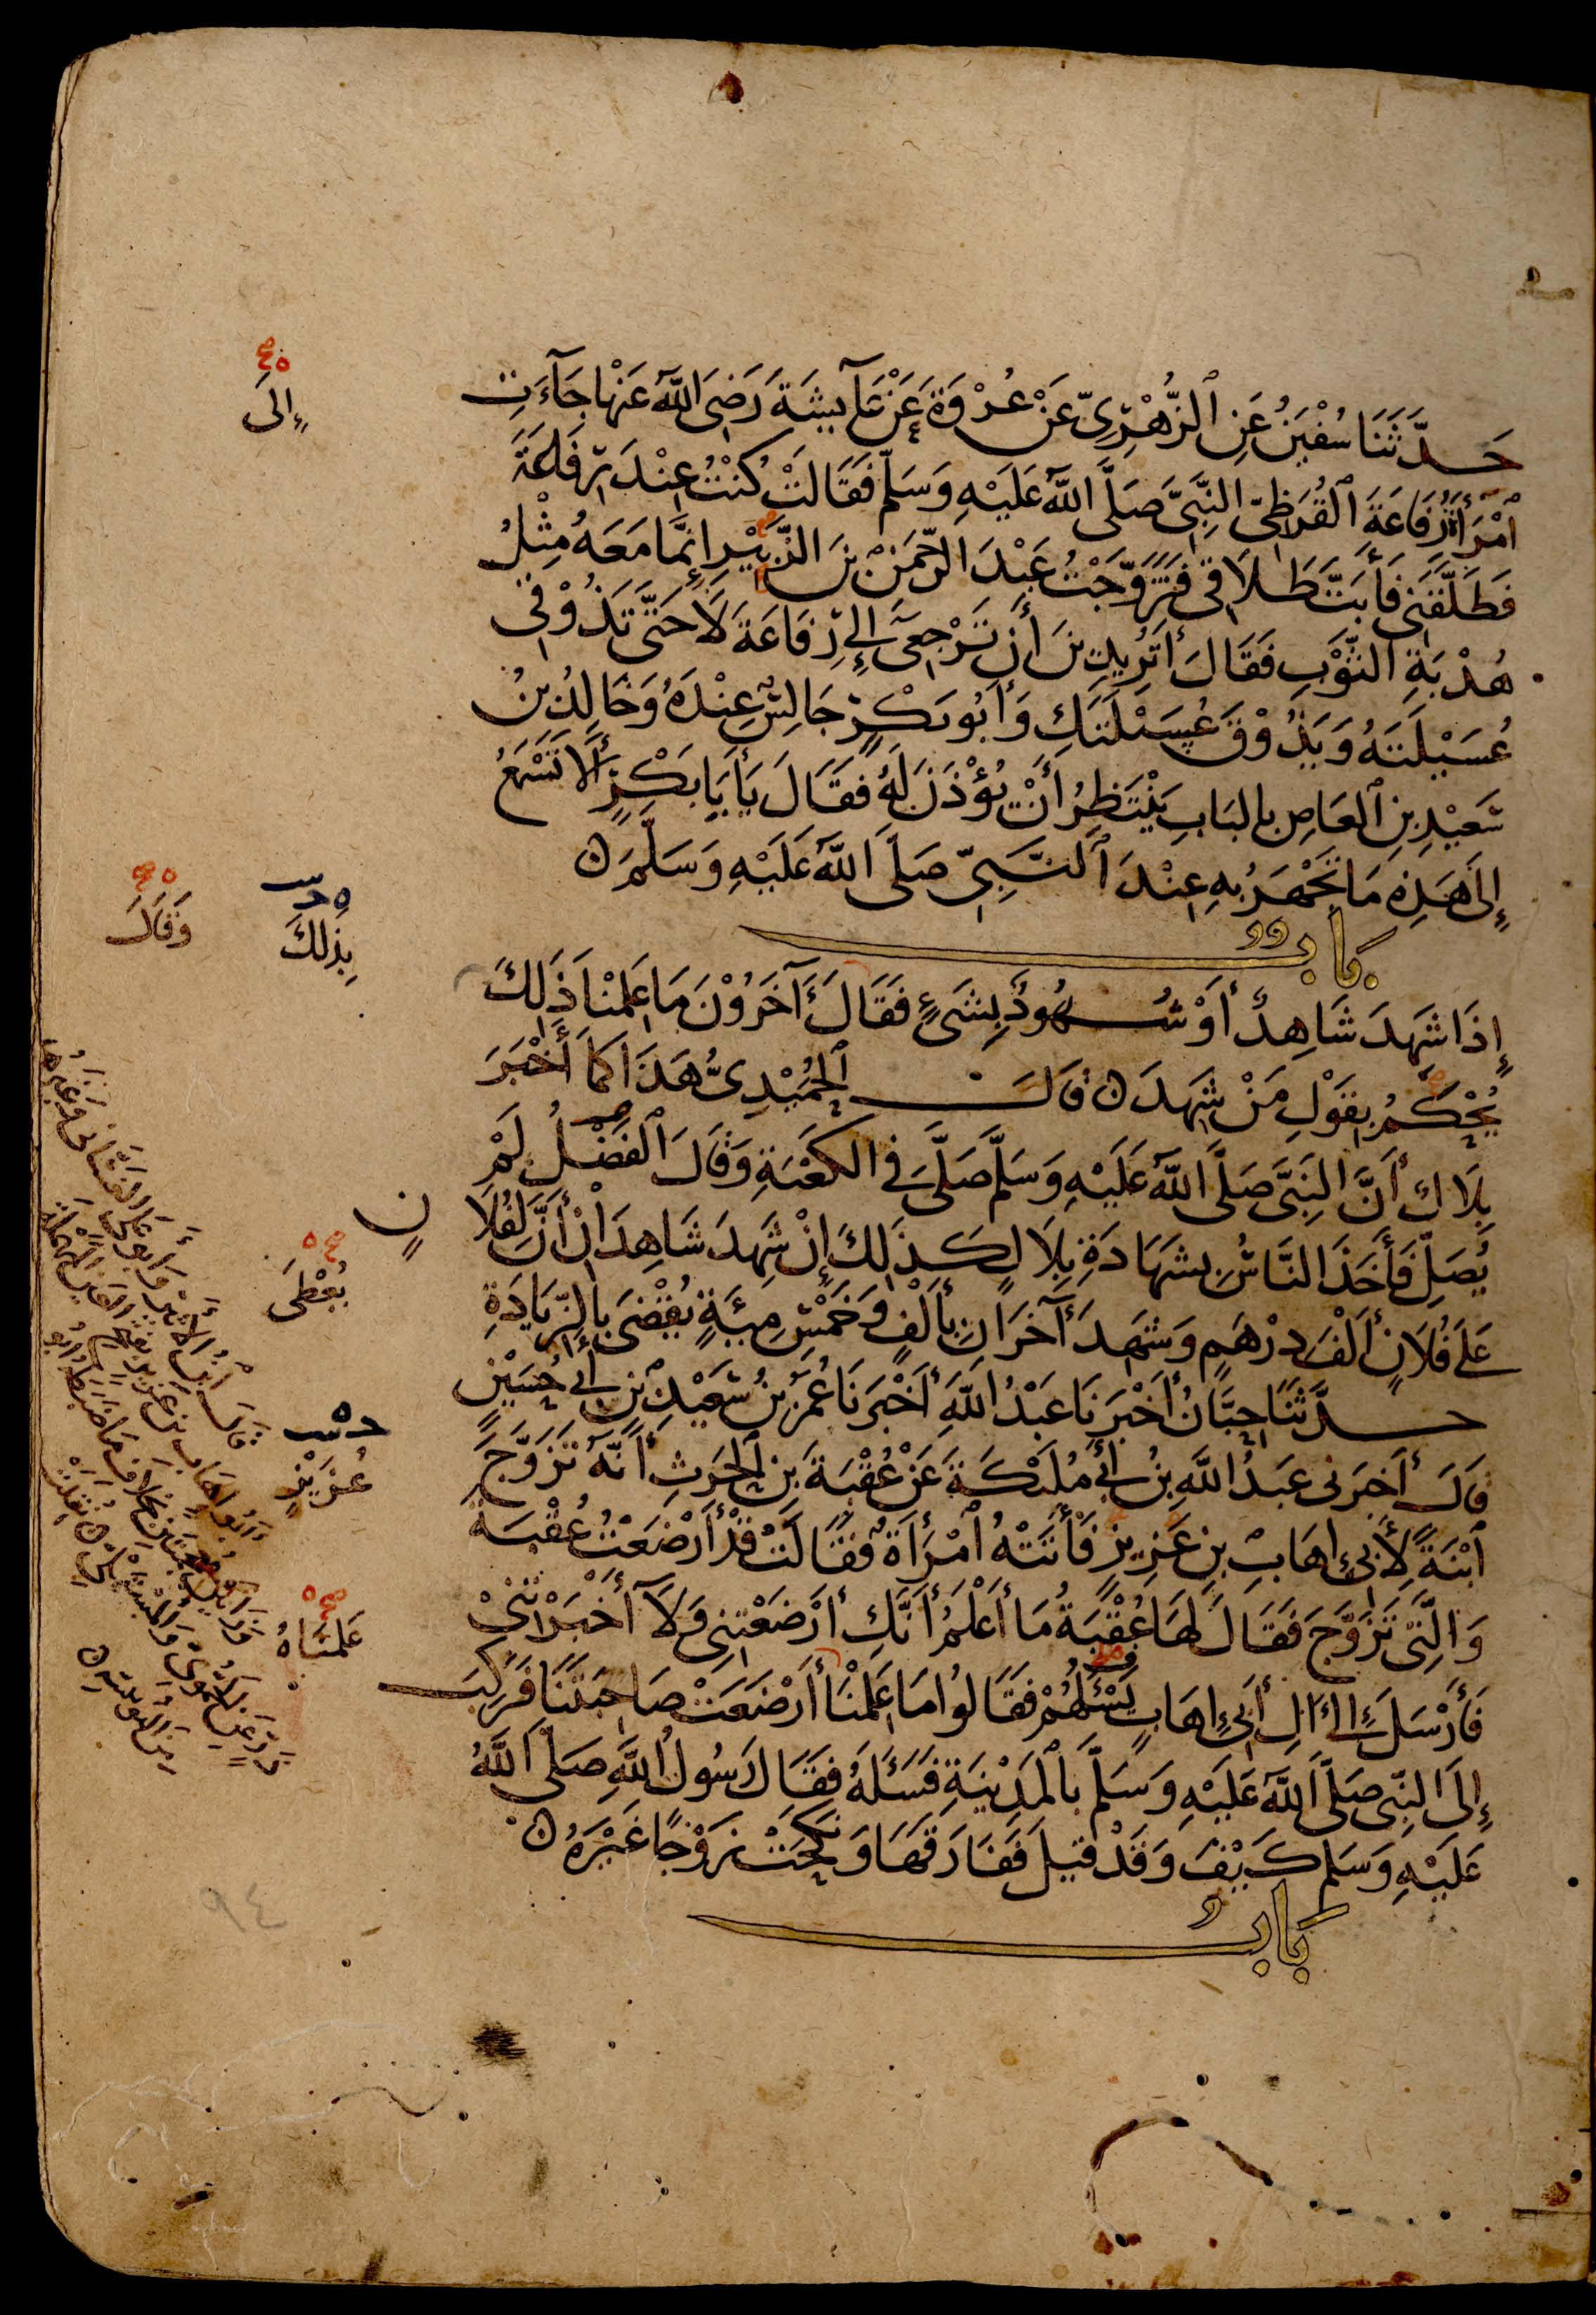 حَدَّثَنَا سُفْيٰنُ عَنِ ٱلزُّهْرِىِّ عَنْ عُرْوَةَ عَنْ عَآيِشَةَ رَضِىَ اللَّهُ عَنْهَا جَآءَتِ
ٱمْرَأَةُ رِفَاعَةَ ٱلْقُرَظِىِّ النَّبِىَّ صَلَّى اللَّهُ عَلَيْهِ وَسَلَّمَ فَقَالَتْ كُنْتُ عِنْدَ رِفَاعَةَ
فَطَلَّقَنِى فَأَبَتَّ طَلَاقِى فَتَزَوَّجْتُ عَبْدَ الرَّحْمَنِ بْنَ الزَّبِيْرِ إِنَّمَا مَعَهُ مِثْلُ
هُدْبَةِ الثَّوْبِ فَقَالَ أَتُرِيدِينَ أَنْ تَرْجِعِى إِلَى رِفَاعَةَ لَا حَتَّى تَذُوْقِى
عُسَيْلَتَهُ وَيَذُوْقَ عُسَيْلَتَكِ وَأَبُو بَكْرٍ جَالِسٌ عِنْدَهُ وَخَالِدُ بْنُ
سَعِيْدِ بْنِ ٱلْعَاصِ بِالْبَابِ يَنْتَظِرُ أَنْ يُؤْذَنَ لَهُ فَقَالَ يَأبَا بَكْرٍ أَلَا تَسْمَعُ
إِلَى هَذِهِ مَا تَجْهَرُ بِهِ عِنْدَ ٱلنَّبِىِّ صَلَّى اللَّهُ عَلَيْهِ وَسَلَّمَ ن
بابٌ
إِذَا شَهِدَ شَاهِدٌ أَوْ شُهُودٌ بِشَىْءٍ فَقَالَ ءَآخَرُوْنَ مَا عَلِمْنَا ذَلِكَ
يُحْكَمُ بِقَوْلِ مَنْ شَهِدَ ن قَالَ ٱلْحُمَيْدِىُّ هَذَا كَمَا أَخْبَرَ
بِلَالٌ أَنَّ النَّبِىَّ صَلَّى اللَّهُ عَلَيْهِ وَسَلَّمَ صَلَّى فِى الكَعْبَةِ وَقَالَ ٱلْفَضْلُ لَمْ
يُصَلِّ فَأَخَذَ النَّاسُ بِشَهَادَةِ بِلَالٍ كَذَلِكَ إِنْ شَهِدَ شَاهِدَانِ أَنَّ لِفُلَا
نٍ
عَلَى فُلَانٍ أَلْفَ دِرْهَمٍ وَشَهِدَ ءَآخَرَانِ بِأَلْفٍ وَخَمْسِ مِئَةٍ يُقْضَى بِالزِّيَادَةِ
حَدَّثَنَا حِبَّانُ أَخْبَرَنَا عَبْدُ اللَّهِ أَخْبَرَنَا عُمَرُ بْنُ سَعِيْدِ بْنِ أَبِى حُسَيْنٍ
قَالَ أَخْبَرَنِى عَبْدُ اللَّهِ بْنُ أَبِى مُلَيْكَةَ عَنْ عُقْبَةَ بْنِ ٱلْحَرِثِ أَنَّهُ تَزَوَّجَ
ٱبْنَةً لِأَبِى إِهَابِ بْنِ عَزِيزٍ فَأَتَتْهُ ٱمْرَأَةٌ فَقَالَتْ قَدْ أَرْضَعْتُ عُقْبَةَ
وَالَّتِى تَزَوَّجَ فَقَالَ لَهَا عُقْبَةُ مَا أَعْلَمُ أَنَّكِ أَرْضَعْتِنِى وَلَا أَخْبَرْتِنِىْ
فَأَرْسَلَ إِلَى ءَالِ أَبِى إِهَابٍ يَسْئَلُهُمْ فَقَالُوا مَا عَلِمْنَا أَرْضَعَتْ صَاحِبَتَنَا فَرَكِبَ
إِلَى النَّبِىِّ صَلَّى اللَّهُ عَلَيْهِ وَسَلَّمَ بِٱلْمَدِيْنَةِ فَسَئَلَهُ فَقَالَ رَسُولُ اللَّهِ صَلَّى اللَّهُ
عَلَيْهِ وَسَلَّمَ كَيْفَ وَقَدْ قِيلَ فَفَارَقَهَا وَنَكَحَتْ زَوْجًا غَيْرَهُ ن
بابُ
إِلَى
بِذَلِكَ
وَقَالَ
يُعْطَى
عُزَيْزٍ
عَلِمْنَاهُ
٩٤